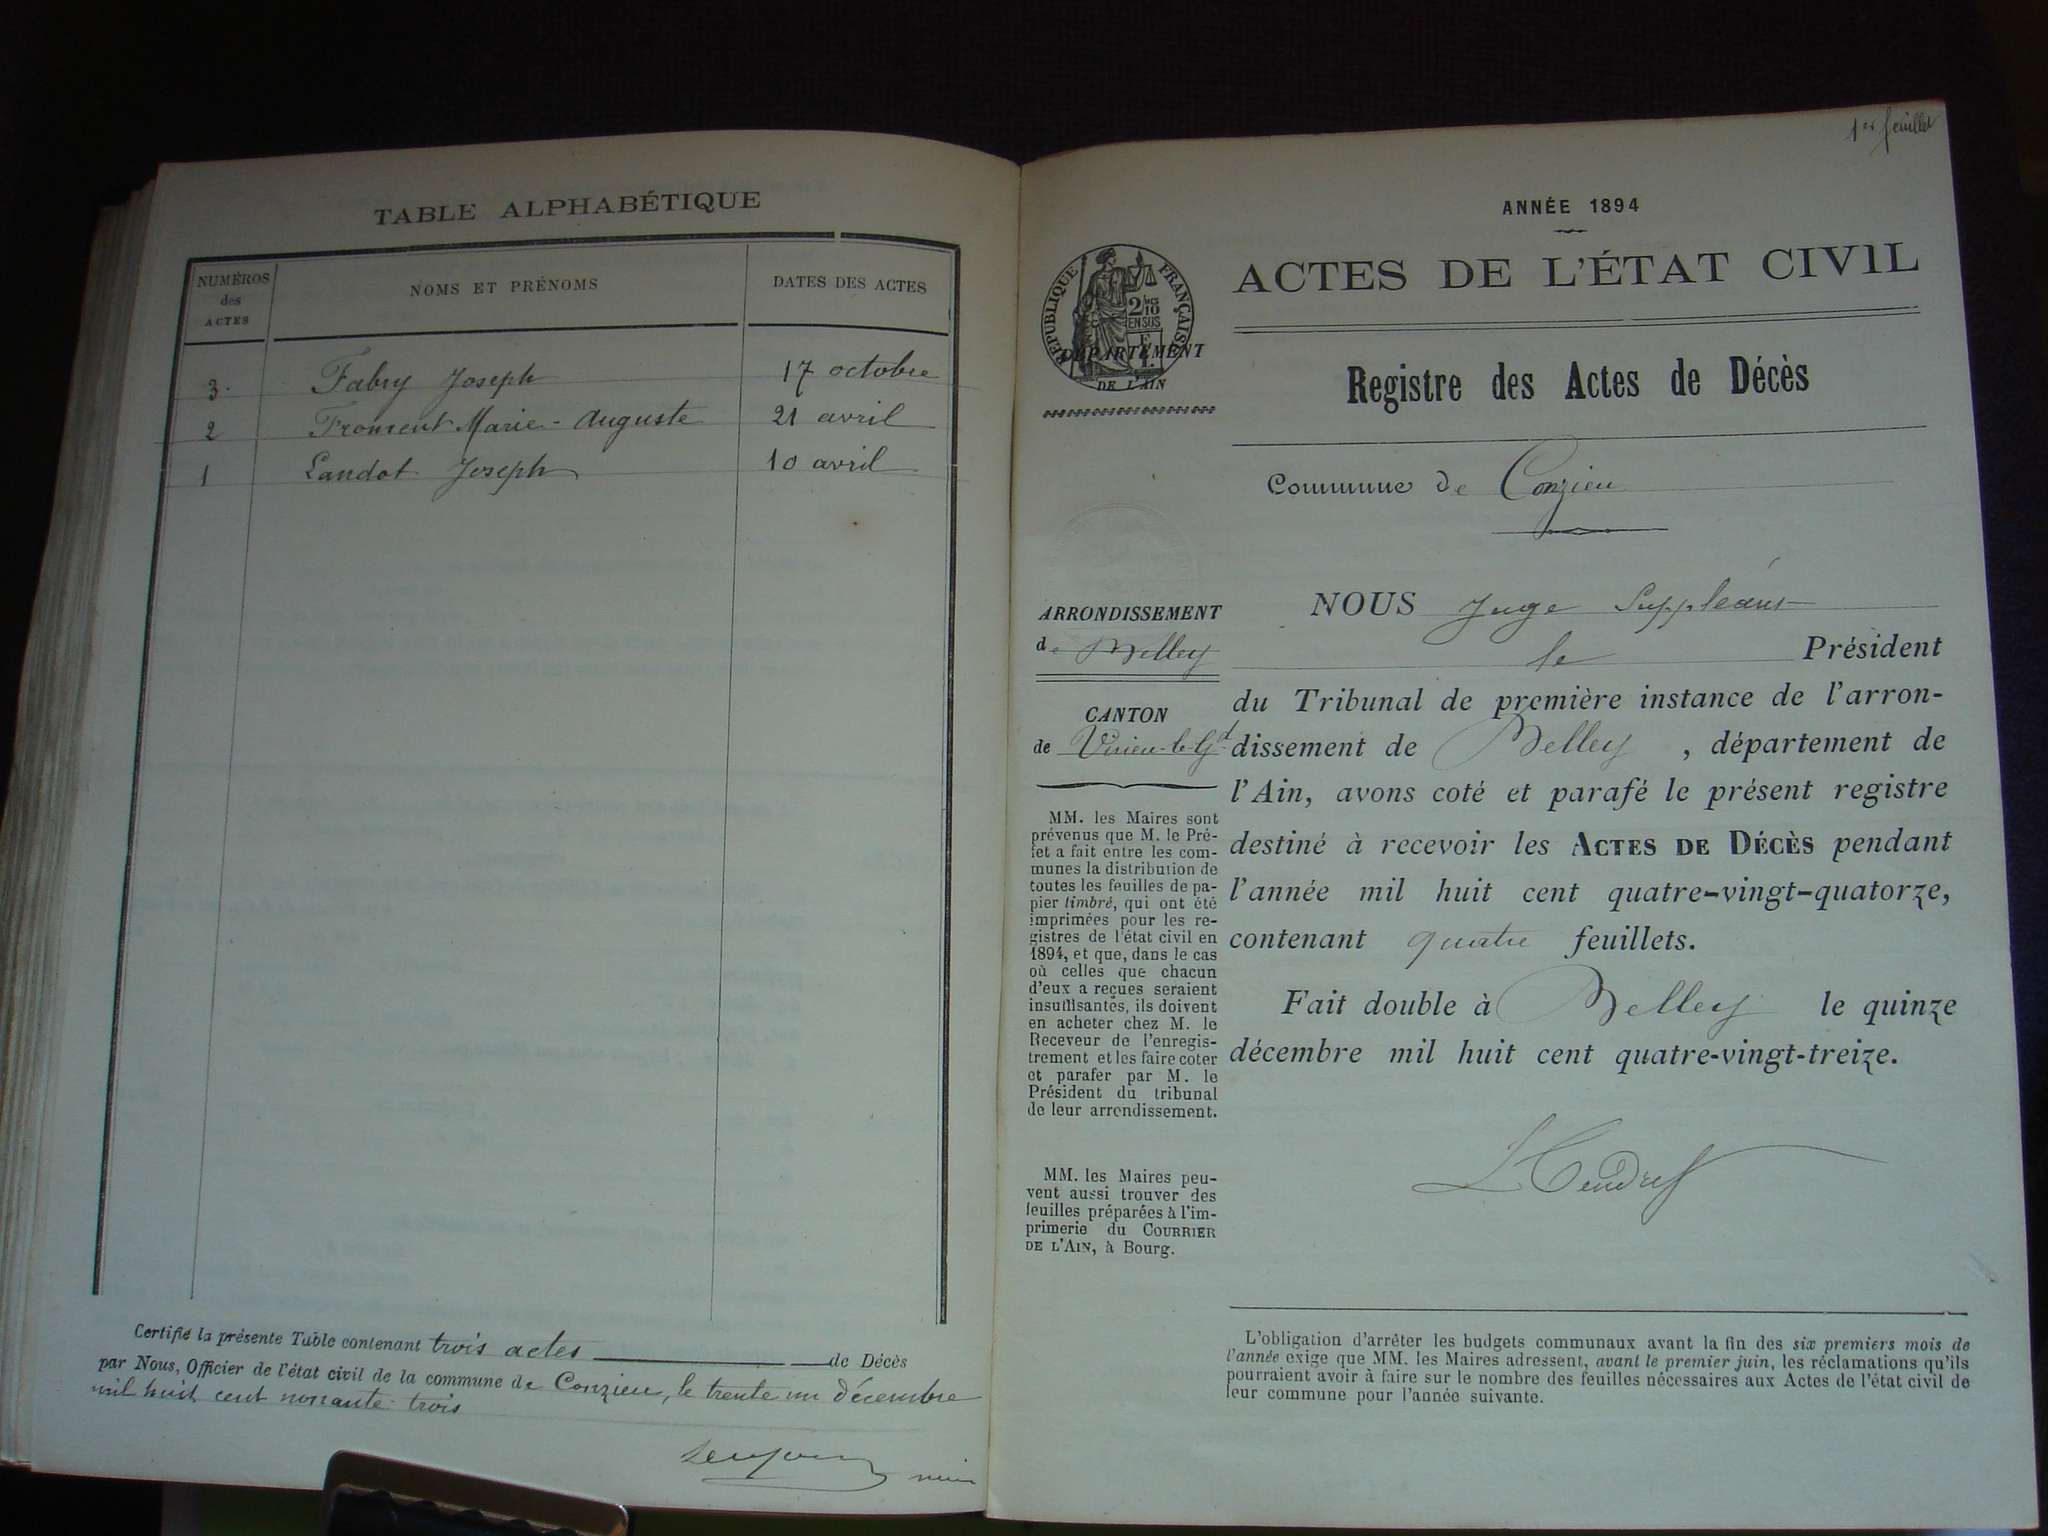 TABLE ALPHABÉTIQUE
NUMÉROS des ACTES
NOMS ET PRÉNOMS
DATES DES ACTES
3. Fabry Joseph 17 octobre
2 Froment Marie-Auguste 21 avril
1 Landot Joseph 10 avril
Certifié la présente Table contenant trois actes de Décès
par Nous, Officier de l'état civil de la commune de Conzieu, le trente un décembre
mil huit cent nonante trois
1er feuillet
ANNÉE 1894
ACTES DE L'ÉTAT CIVIL
RÉPUBLIQUE FRANÇAISE
2/10
EN SUS
DÉPARTEMENT
DE L'AIN
Registre des Actes de Décès
Commune de Conzieu
ARRONDISSEMENT
de Belley
CANTON
de Virieu-le-Gd
MM. les Maires sont
prévenus que M. le Pré-
fet a fait entre les com-
munes la distribution de
toutes les feuilles de pa-
pier timbré, qui ont été
imprimées pour les re-
gistres de l'état civil en
1894, et que, dans le cas
où celles que chacun
d'eux a reçues seraient
insuffisantes, ils doivent
en acheter chez M. le
Receveur de l'enregis-
trement et les faire coter
et parafer par M. le
Président du tribunal
de leur arrondissement.
MM. les Maires peu-
vent aussi trouver des
feuilles préparées à l'im-
primerie du COURRIER
DE L'AIN, à Bourg.
NOUS Juge Suppléant
le Président
du Tribunal de première instance de l'arron-
dissement de Belley, département de
l'Ain, avons coté et parafé le présent registre
destiné à recevoir les ACTES DE DÉCÈS pendant
l'année mil huit cent quatre-vingt-quatorze,
contenant quatre feuillets.
Fait double à Belley le quinze
décembre mil huit cent quatre-vingt-treize.
L'obligation d'arrêter les budgets communaux avant la fin des six premiers mois de
l'année exige que MM. les Maires adressent, avant le premier juin, les réclamations qu'ils
pourraient avoir à faire sur le nombre des feuilles nécessaires aux Actes de l'état civil de
leur commune pour l'année suivante.